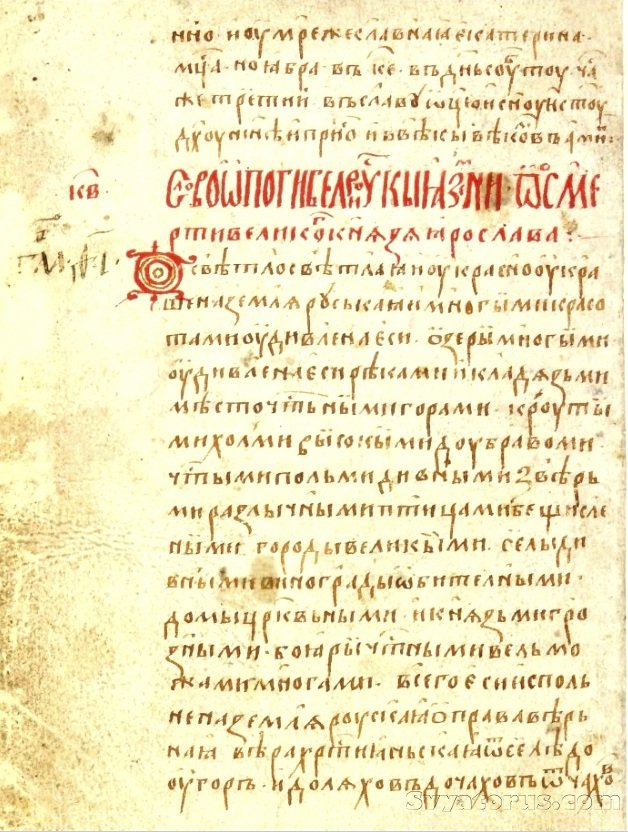 нно · и оумре же славнаꙗ екатерина ·
мцⷭ҇а · ноꙗбра · въ к҃е · въ днь соуⷠ҇тоу · ча
же третии · въ славу ѡц҃ю и сн҃оу и ст҃оу
дх҃оу и нн҃ѣ и приⷭ҇но и въ вѣкы вѣковъ ами́н:
к҃в
Слово ѡ погибели роуⷭ҇кыꙗ земли · ѿ сме
рти великоⷢ҇ кнѧзѧ ꙗрослава :
Ѡ свѣтло свѣтлаꙗ и оукрасно оукра
шена землѧ руськаꙗ и многыми красо
тами оудивлена еси · ѻзеры многыми
оудивлена еси рѣками и кладѧзьми
мѣсточтⷭ҇ьными горами · кроуты
ми холми высокыми доубравоми
чтⷭ҇ыми польми дивными звѣрь
ми разлычными птицами бещисле
ными · городы великыми · селы ди
вными винограды ѡбителными ·
домы црк҃вьными · и кнѧзьми гро
зными · боꙗры чтⷭ҇ными вельмо
жами многами · всего еси испол
нена землѧ роускаꙗ ѻ правовѣрь
наꙗ вѣра хрⷭ҇тиꙗньскаꙗ ѿселѣ до
оугоръ · и до лѧховъ до чаховъ ѿ чахоⷡ҇
Svyatorus.com